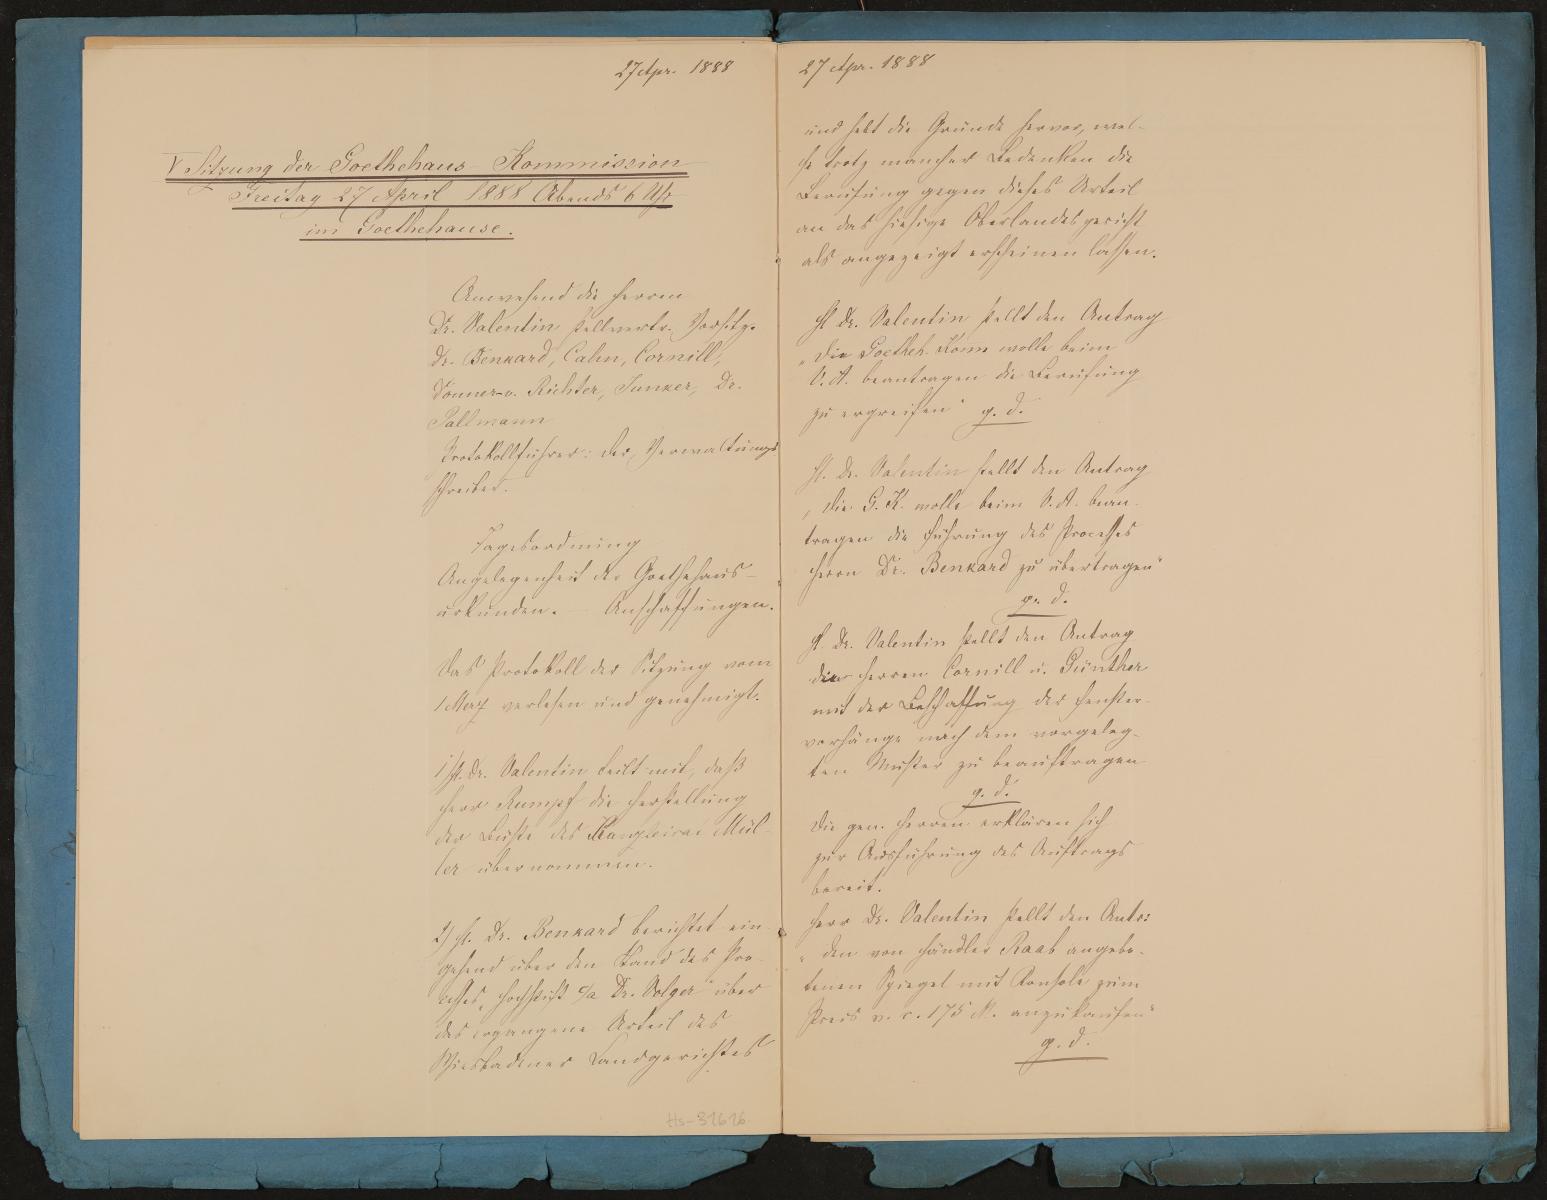 27 Apr. 1888
V Sitzung der Goethehaus-Kommission
Freitag 27 April 1888 Abends 6 Uhr
im Goethehause.
Anwesend die Herren
Dr. Valentin stellvertr. Vorsitz.
Dr. Benkard, Cahn, Cornill,
Donner-v. Richter, Junker, Dr.
Pallmann
Protokollführer: der Verwaltungs
schreiber.
Tagesordnung
Angelegenheit der Goethehaus-
urkunden. – Anschaffungen.
Das Protokoll der Sitzung vom
1 Merz verlesen und genehmigt.
1/ H. Dr. Valentin teilt mit, daß
Herr Rumpf die Herstellung
der Büste des Kanzleirat Mül-
ler übernommen.
2/ H. Dr. Benkard berichtet ein-
gehend über den Stand des Pro-
cesses „Hochstift c/a Dr. Volger" über
das ergangene Urteil des
Wiesbadener Landgerichtes
Hs-31616
27 Apr. 1888
und hebt die Gründe hervor, wel-
che trotz mancher Bedenken die
Berufung gegen dieses Urteil
an das hiesige Oberlandesgericht
als angezeigt erscheinen lassen.
H Dr. Valentin stellt den Antrag
„Die Goetheh. Komm wolle beim
V. A. beantragen die Berufung
zu ergreifen" g. d.
H. Dr. Valentin stellt den Antrag
„Die G. K. wolle beim V. A. bean-
tragen die Führung des Processes
Herrn Dr. Benkard zu übertragen"
g. d.
H. Dr. Valentin stellt den Antrag
die Herren Cornill u. Günther
mit der Beschaffung der Fenster-
vorhänge nach dem vorgeleg-
ten Muster zu beauftragen
g. d.
Die gen. Herren erklären sich
zur Ausführung des Auftrags
bereit.
Herr Dr. Valentin stellt den Antr:
„den von Händler Raab angebo-
tenen Spiegel mit Konsole zum
Preis v. c. 175 M. anzukaufen"
g. d.